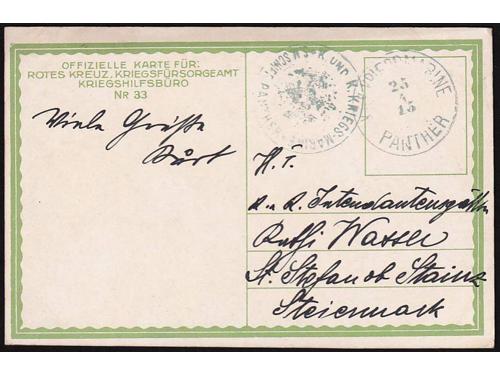 OFFIZIELLE KARTE FÜR:
ROTES KREUZ, KRIEGSFÜRSORGEAMT
KRIEGSHILFSBÜRO
NR 33
KRIEGSMARINE
25
15
PANTHER
K. UND K. KRIEGS-MARINE
Viele Grüße
Kurt
H. T.
k. u. k. Intendantensgattin
Wasser
St. Stefan ob Stainz
Steiermark